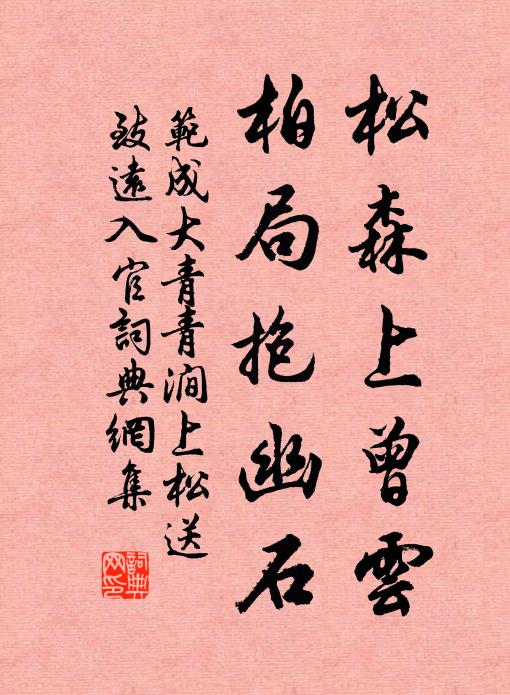 松森上曾雲
柏局抱幽石
範成大青青澗上松送
致遠入官詞典網集
詞典网印